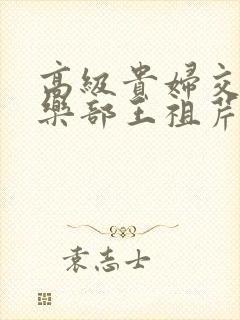 高級貴婦交
樂部王祖芹
袁志士